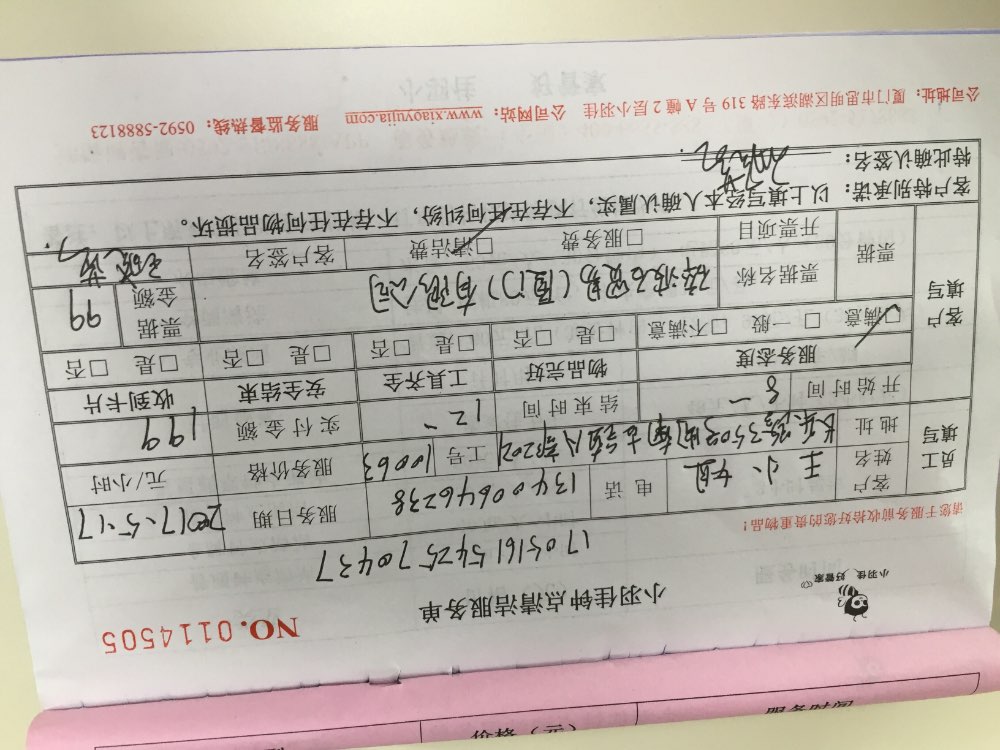 小羽佳 好管家
小羽佳钟点清洁服务单
NO.0114505
17051615425570437
请您于服务前收拾好您的贵重物品！
员工填写
客户姓名 王小姐 电话 13400646238 服务日期 2017-5-17
地址 工号 10063 服务价格 元/小时
开始时间 8 — 结束时间 12、 实付金额 199
服务态度 物品完好 工具齐全 安全结束 收到卡片
客户填写
□满意 □一般 □不满意 □是 □否 □是 □否 □是 □否 □是 □否
票据 票据名称 (厦门)有限公司 票据金额 99
开票项目 □服务费 □清洁费 客户签名
客户特别承诺：以上填写经本人确认属实，不存在任何纠纷，不存在任何物品损坏。
特此确认签名：
公司地址：厦门市思明区湖滨东路 319 号 A 幢 2 层小羽佳 公司网站：www.xiaoyujia.com 服务监督热线：0592-5888123
价格（元） 服务时间